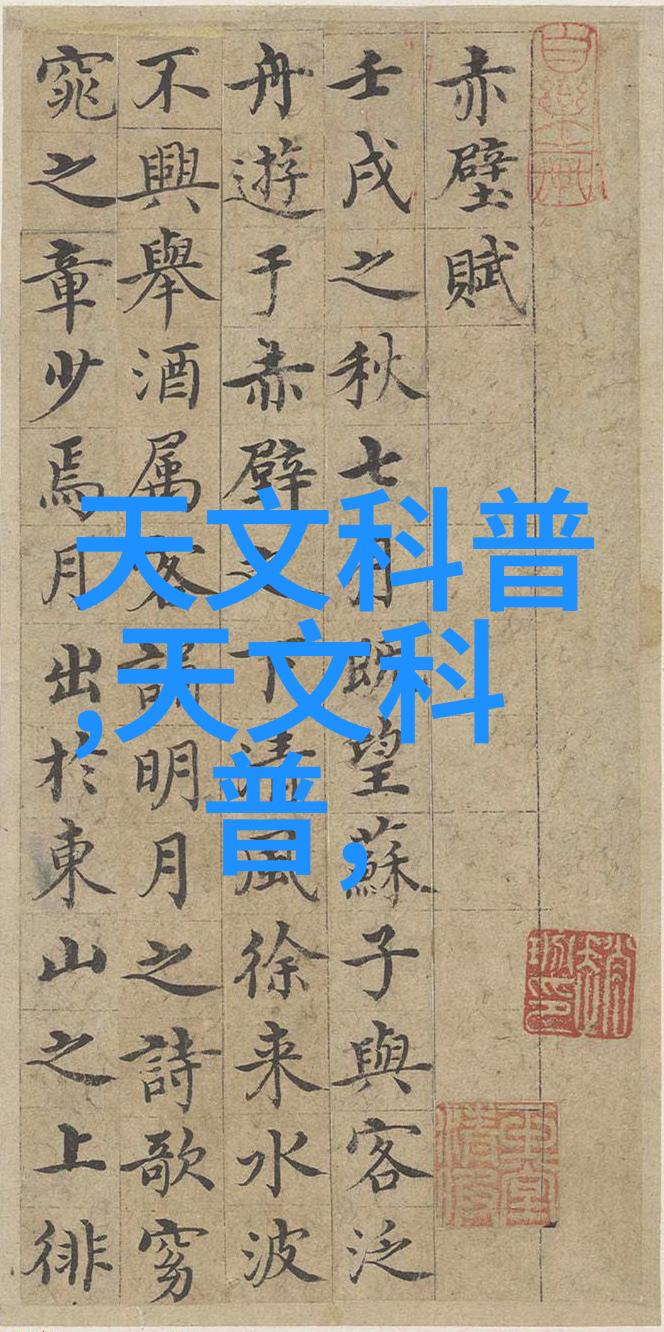 赤壁賦
壬戌之秋七月既望蘇子與客泛
舟遊于赤壁之下清風徐来水波
不興舉酒属客誦明月之詩歌窈
窕之章少焉月出於東山之上徘
天文科普
,天文科
普,